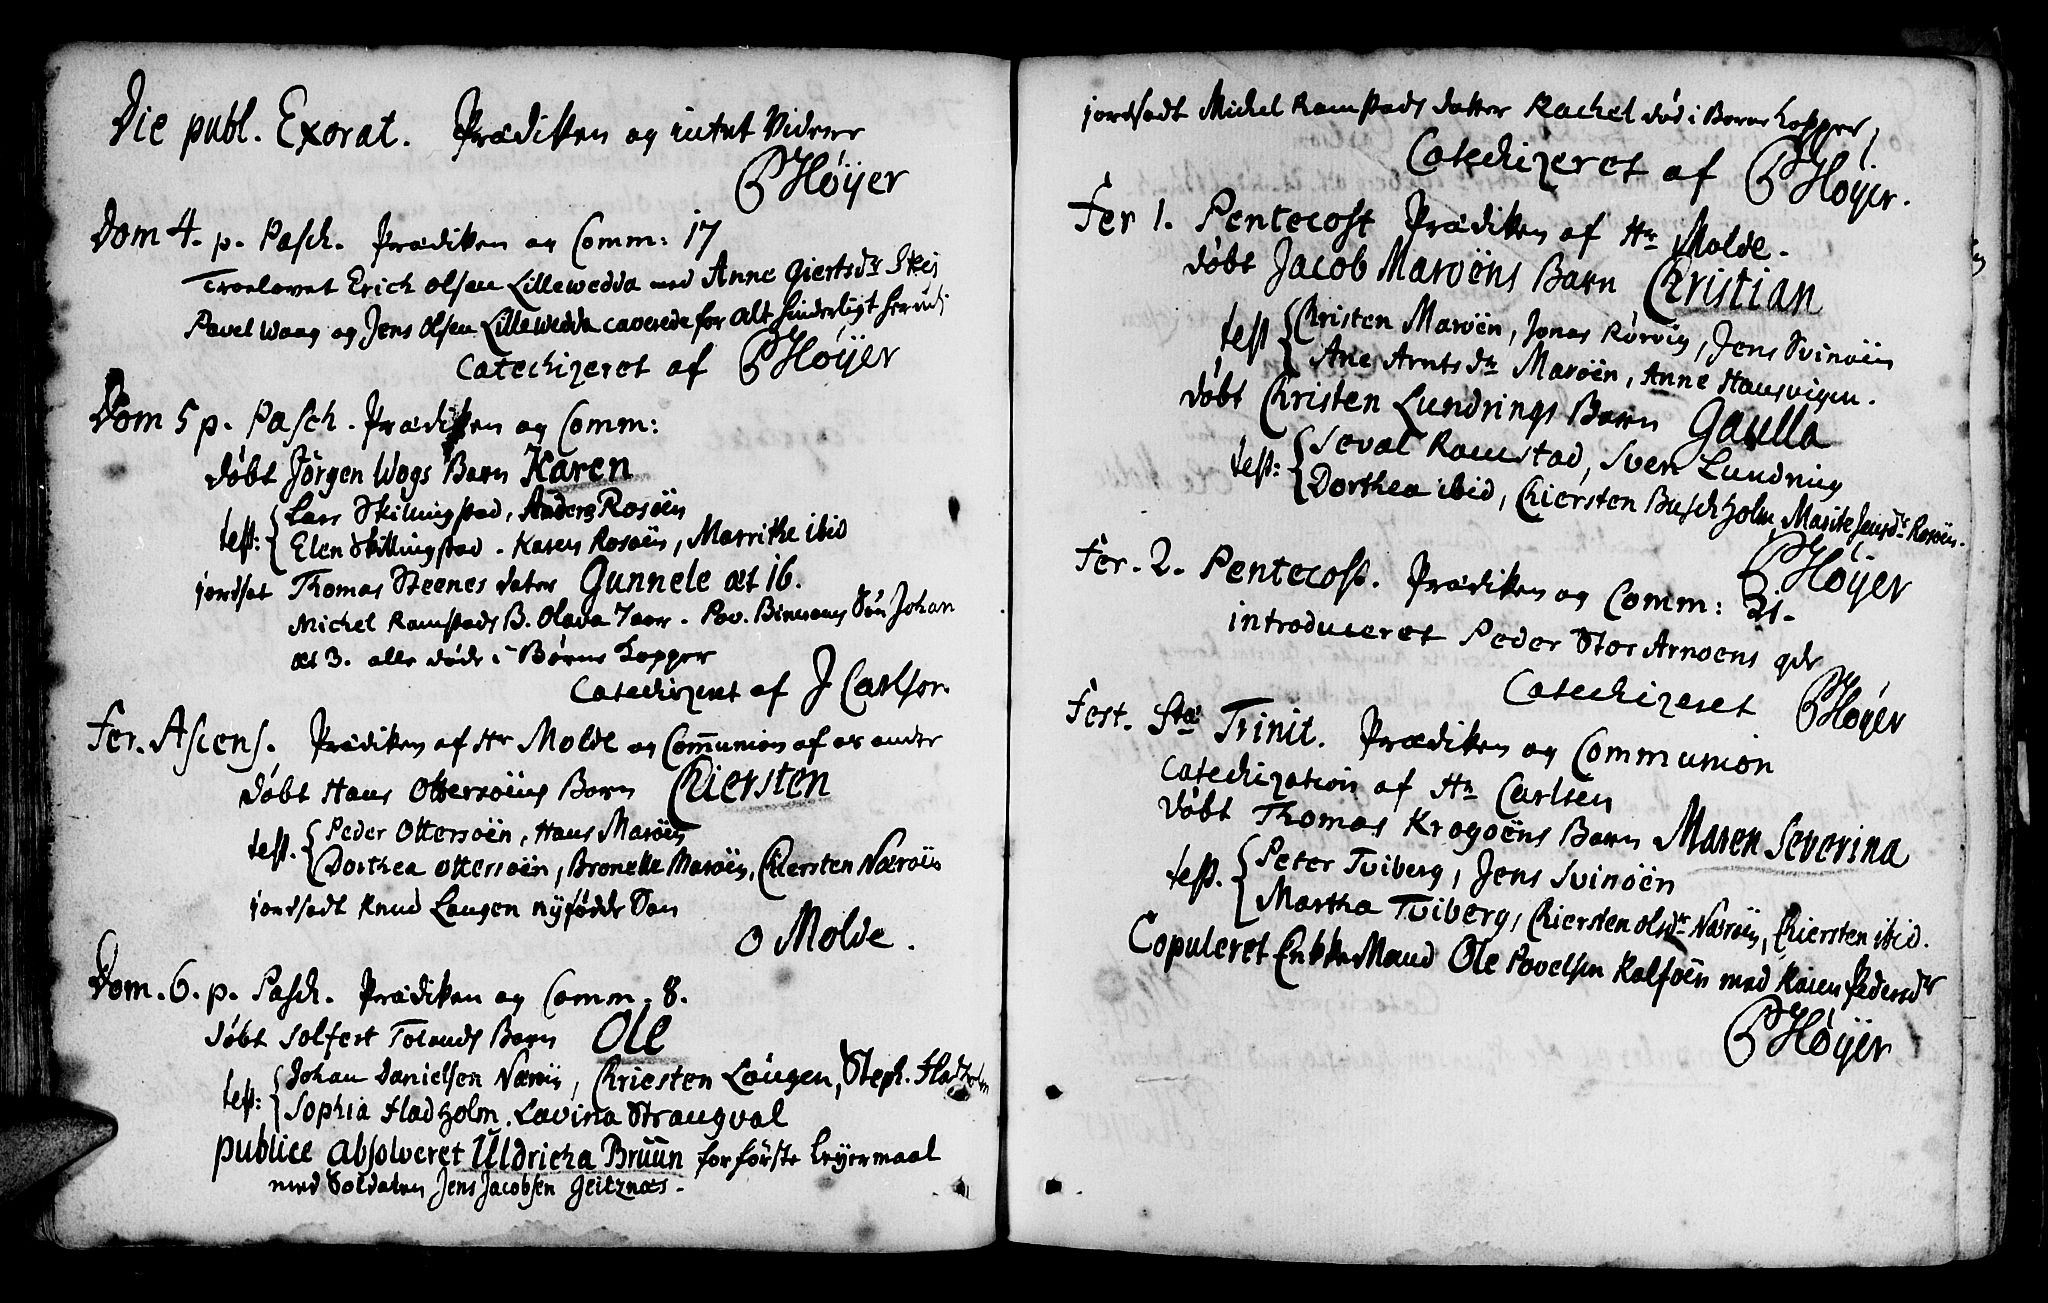 Die publ. Exorat. Prædiken og intet Videre
P Høÿer
Dom 4. p. Pasch. Prædiken og Comm: 17
Troelovet Erich Olsen Lillewedda med Anne Giertsdr Skej
Pavel Waag og Jens Olsen Lillewedda caverede for alt hinderligt herudj
Catechizeret af P Høÿer
Dom 5 p. Pasch. Prædiken og Comm:
døbt Jörgen Wogs Barn Karen
test: Lars Skillingstad, Anders Rosöen
Elen Skillingstad. Karen Rosöen, Marrithe ibid
jordsat Thomas Steenes dater Gunnele æt 16.
Michel Ramstads B. Olava 7 aar. Pov. Søn Johan
æt 3. alle døde i Børne Kopper
Catechizeret af J Carlson.
Fer. Ascens. Prædiken af Hr Molde og Communion af os andre
døbt Hans Ottersöens Barn Chiersten
test. Peder Ottersöen, Hans Maröen
Dorthea Ottersöen, Bronelle Maröen, Chiersten Næröen
jordsadt Knud Laugen nyfødde Søn
O Molde.
Dom. 6. p. Pasch. Prædiken og Comm. 8.
døbt Solfest Tolands Barn Ole
test: Johan Danielsen Næröe, Chriesten Laugen, Steph. Fladholm
Sophia Fladholm. Lavina Strangval
publice absolveret Uldricha Bruun for første Leyermaal
med Soldaten Jens Jacobsen Geitznæs.
jordsadt Michel Ramstads datter Rachel død i Børne Kopper,
Catechizeret af P Høÿer.
Fer 1. Pentecost Prædiken af Hr Molde.
døbt Jacob Maröens Barn Christian
test Christen Maröen, Jonas Rörvig, Jens Svinöen
Ane Arntsdr Maröen, Anne Hansvigen.
døbt Christen Lundrings Barn Gaulla
test: Seval Ramstad, Sven Lundring
Dorthea ibid, Chiersten Buschholm, Marite Jensdr Rosöen.
P Høÿer
Fer. 2. Pentecost. Prædiken og Comm: 31.
introduceret Peder Stor Arnoens qde
Catechizeret P Høÿer
Fest. Stæ Trinit. Prædiken og Communion
Catechization af Hr Carlsen
døbt Thomas Krogöens Barn Maren Severina
test. Peter Tviberg, Jens Svinöen
Martha Tviberg, Chiersten Olsdr Næröen, Chiersten ibid.
Copuleret Enkke Mand Ole Povelsen Kalföen med Karen Pedersdr
P Høÿer